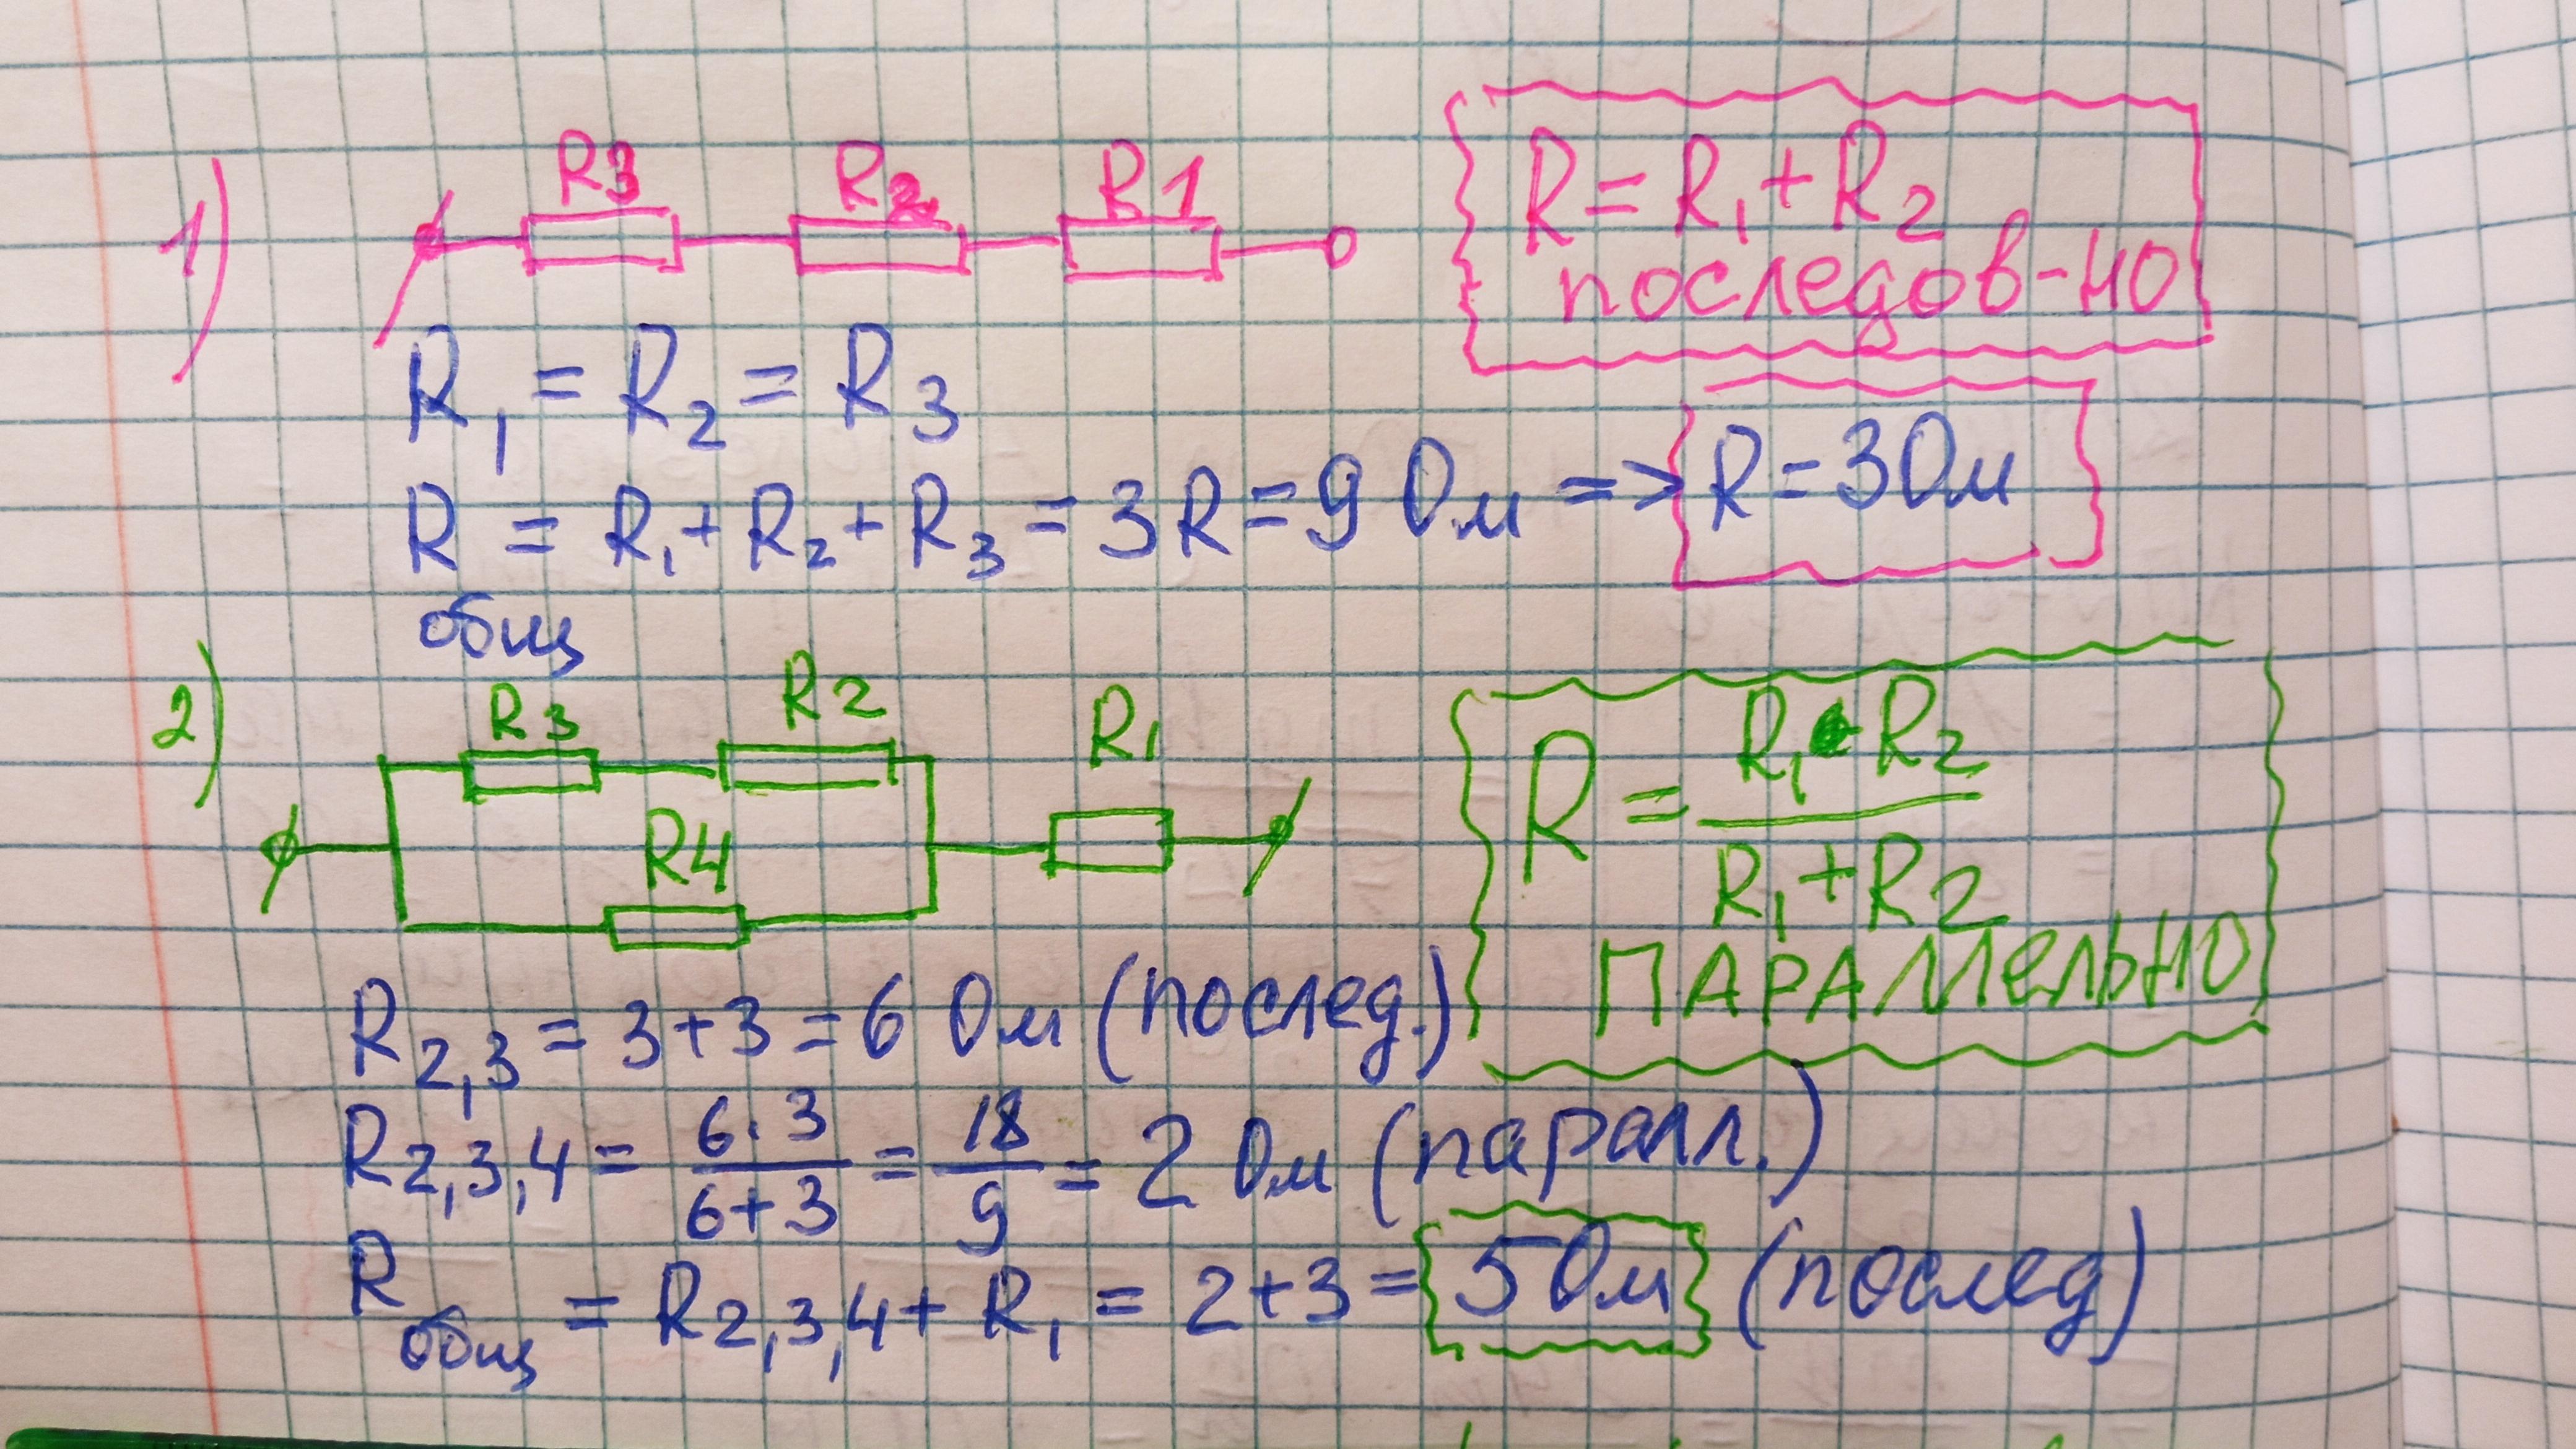 1)
R3 R2 R1
R = R₁ + R₂
последов-но
R₁ = R₂ = R₃
R общ = R₁ + R₂ + R₃ = 3R = 9 Ом => R = 3 Ом
2)
R3 R2 R1
R4
R = (R₁ • R₂) / (R₁ + R₂)
ПАРАЛЛельНО
R₂,₃ = 3 + 3 = 6 Ом (послед.)
R₂,₃,₄ = (6 · 3) / (6 + 3) = 18 / 9 = 2 Ом (паралл.)
R общ = R₂,₃,₄ + R₁ = 2 + 3 = 5 Ом (послед)